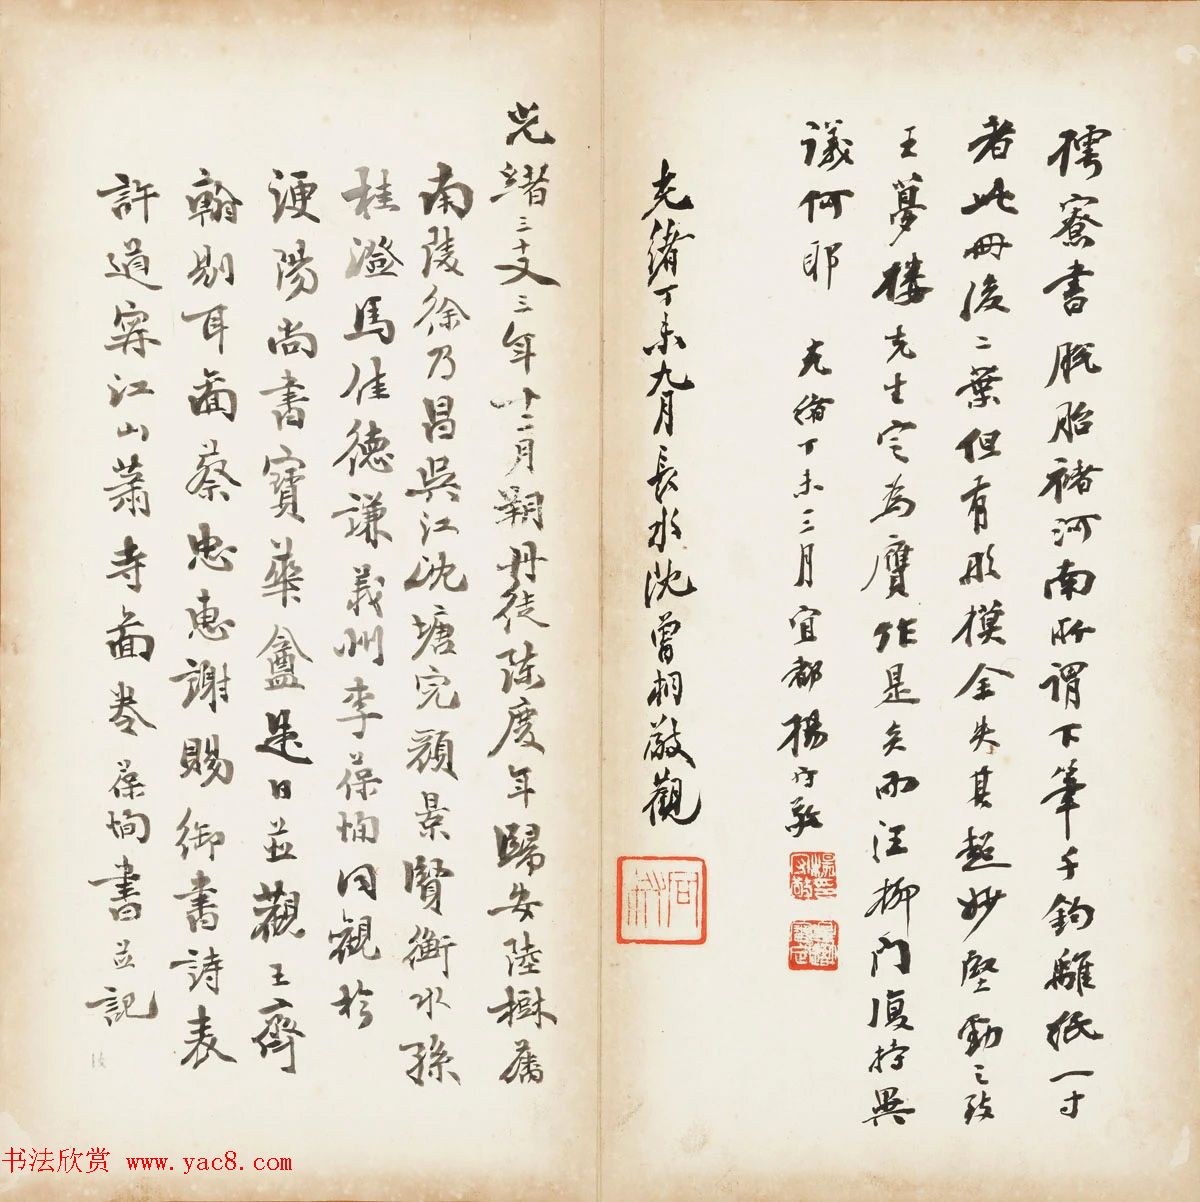 樗寮書脫胎褚河南所謂下筆千鈞離紙一寸
者此冊後二葉但有形模全失其超妙堅勁之致
王夢樓先生定為贗作是矣而汪柳門復持異
議何耶
光緒丁未三月宜都楊守敬
光緒丁未九月長水沈曾桐敬觀
光緒三十又三年十二月朔丹徒陳慶年歸安陸樹藩
南陵徐乃昌吳江沈塘完顏景賢衡水孫
桂澄馬佳德謙義州李葆恂同觀於
浭陽尚書寶華盦是日並觀王齊
翰剔耳圖蔡忠惠謝賜御書詩表
許道寧江山蕭寺圖卷葆恂書並記
书法欣赏 www.yac8.com